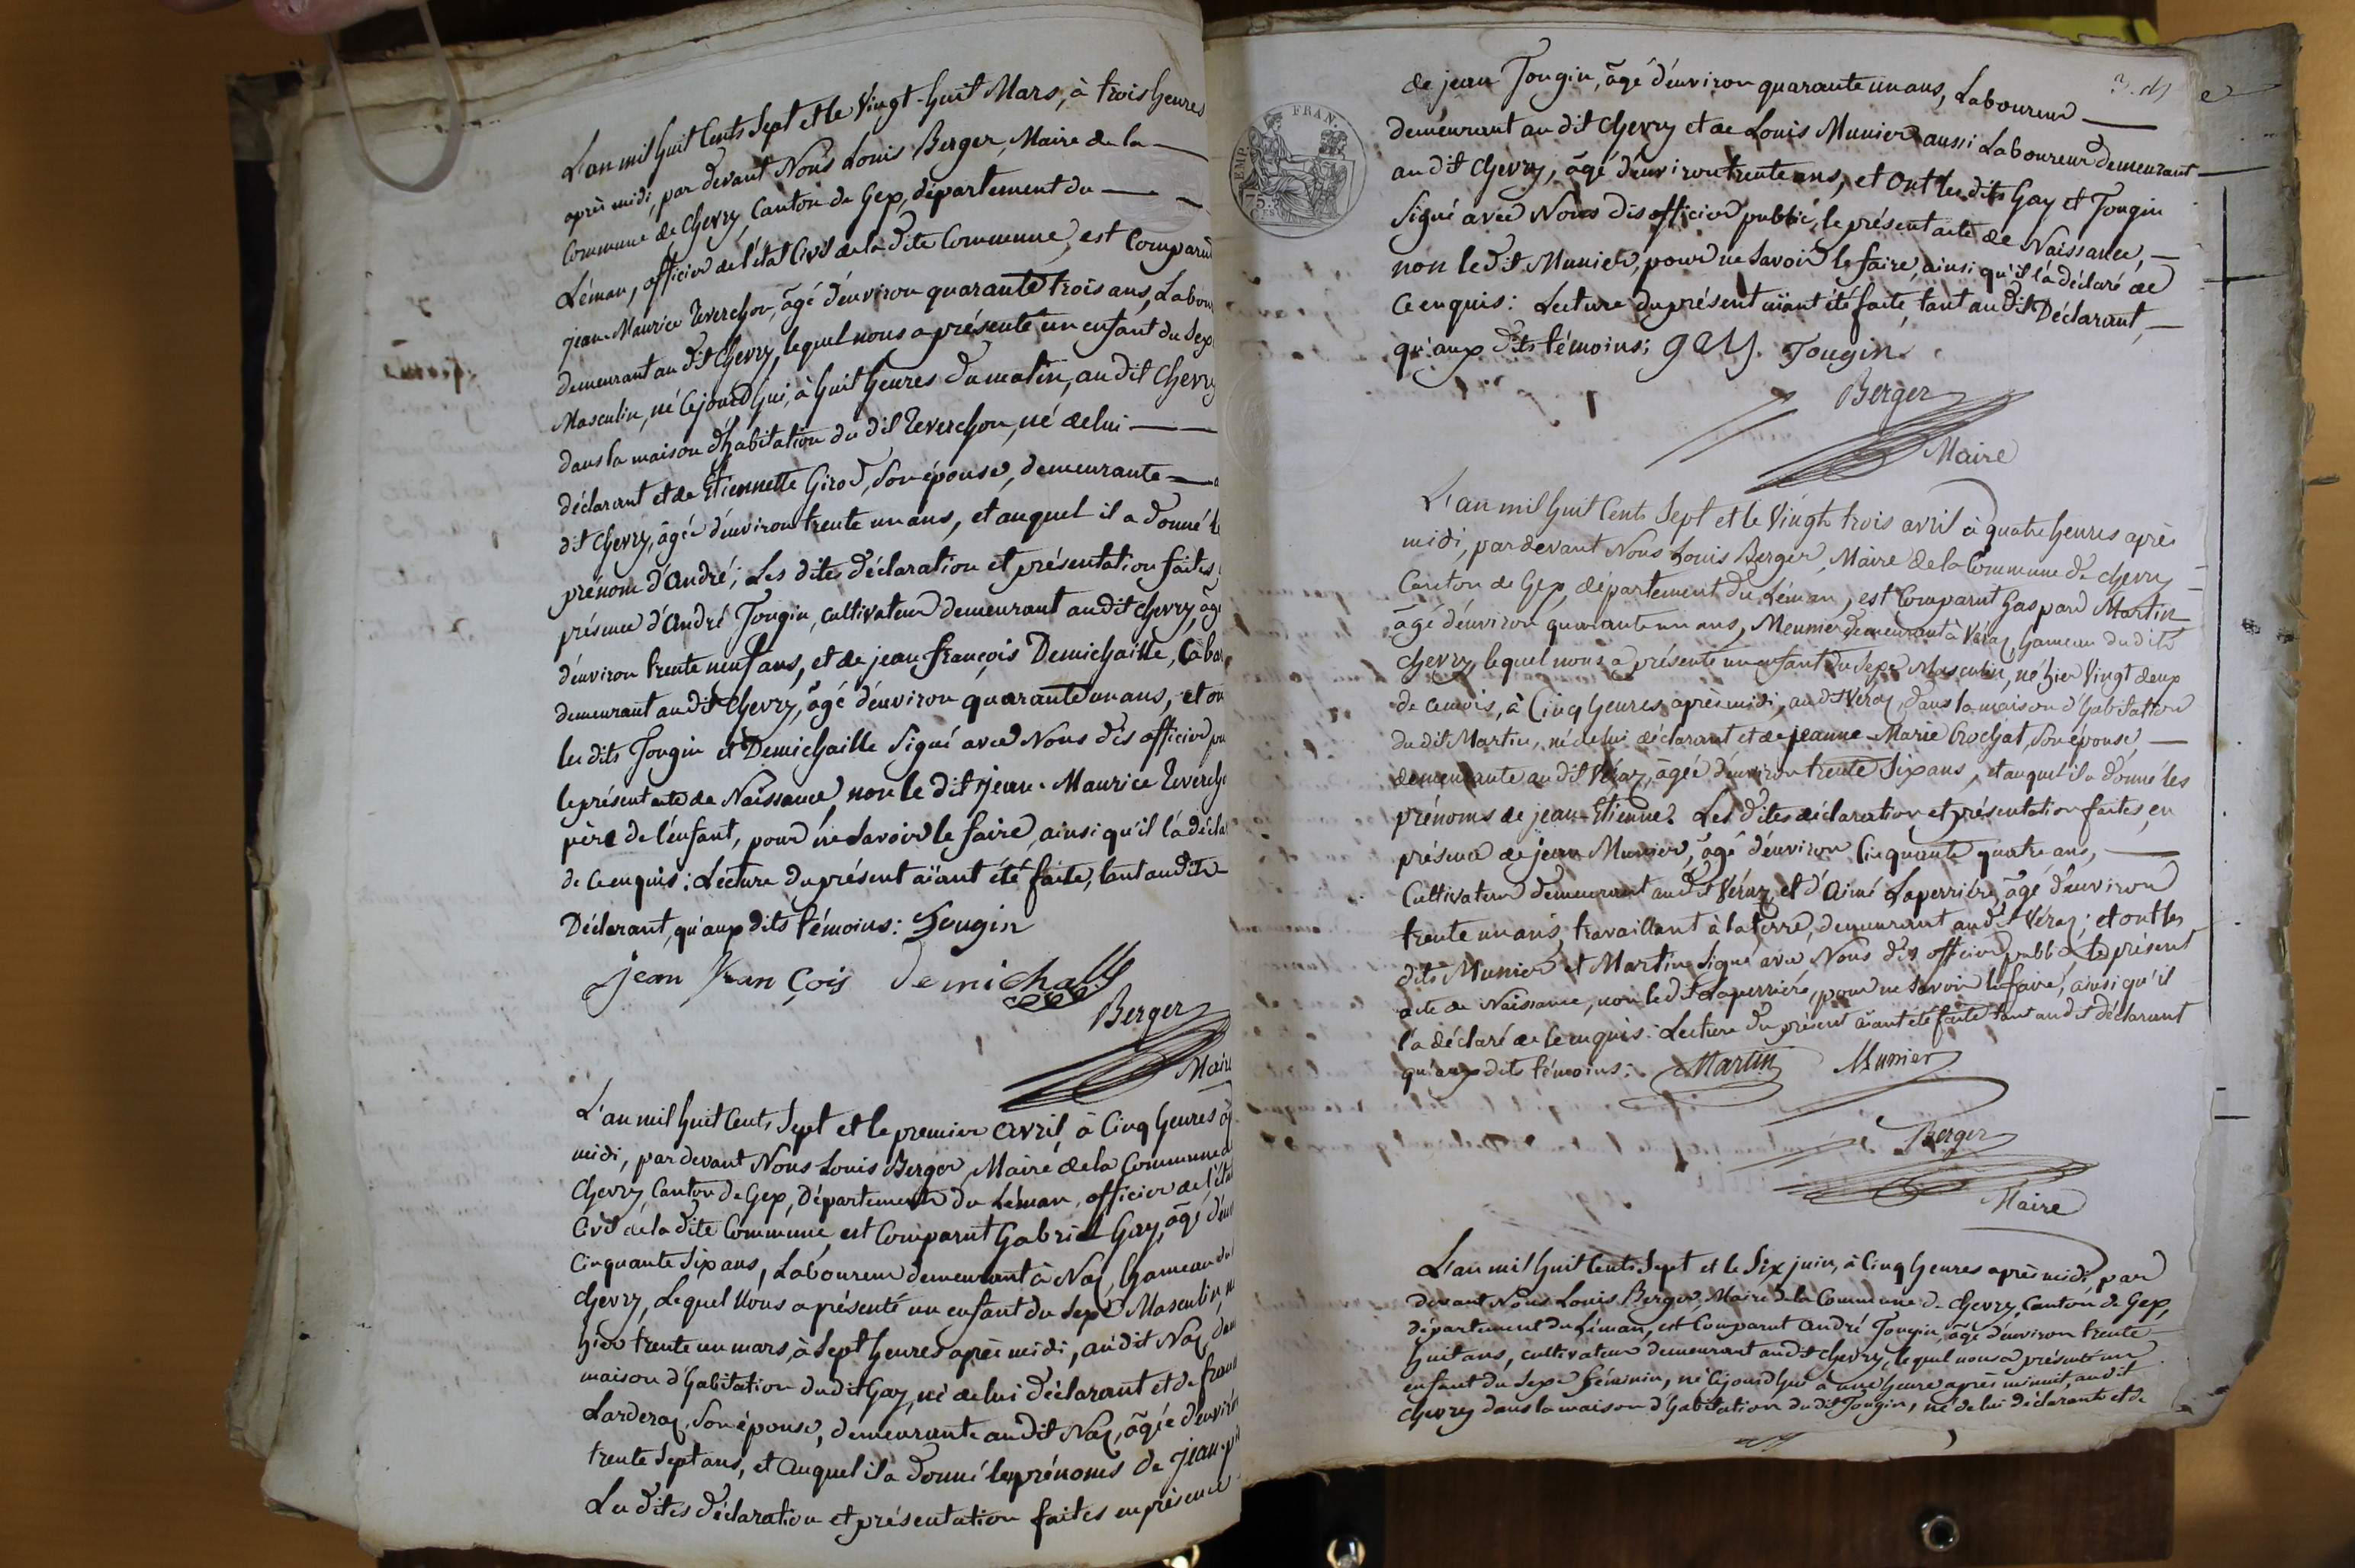 L'an mil huit Cents Sept et le Vingt-huit Mars, à trois heures
après midi, par devant Nous Louis Berger, Maire de la
Commune de Chevry, Canton de Gex, département du
Léman, officier de l'état Civil de la dite Commune, est Comparu
jean-Maurice Reverchon, âgé d'environ quarante trois ans, Labou
demeurant au dit Chevry, lequel nous a présenté un enfant du Sex
Masculin, né Cejourd'hui, à huit heures du matin, au dit Chevry
dans la maison d'habitation du dit Reverchon, né de lui
déclarant et de Etiennette Girod, son épouse, demeurante
dit Chevry, âgée d'environ trente un ans, et auquel il a donné le
prénom d'André; Les dites déclaration et présentation faites
présence d'André Tougin, cultivateur demeurant au dit chevry, âgé
d'environ trente neuf ans, et de jean françois Demichaille, Cabar
demeurant au dit Chevry, âgé d'environ quarante un ans, et on
les dits Tougin et Demichaille Signé avec Nous dis officier pu
le présent acte de Naissance, non le dit jean-Maurice Reverch
père de l'enfant, pour ne savoir le faire, ainsi qu'il l'a décla
de ce enquis: Lecture du présent aïant été faite, tant au dit
Déclarant, qu'aux dits témoins: Tougin
jean fran çois demichalle
Berger
Maire
L'an mil huit Cents Sept et le premier avril, à Cinq heures ap
midi, par devant Nous Louis Berger, Maire de la Commune d
Chevry, Canton de Gex, Département du Léman, officier de l'éta
Civil de la dite Commune, est Comparut Gabriel Gay, âgé d'env
Cinquante Six ans, Laboureur demeurant à Naz, hameau du
Chevry, Lequel Nous a présenté un enfant du Sexe Masculin, n
hier trente un mars, à Sept heures après midi, au dit Naz, dan
maison d'habitation du dit Gay, né de lui déclarant et de fran
Larderaz, son épouse, demeurante au dit Naz, âgée d'enviro
trente Sept ans, et auquel il a donné les prénoms de jean-p
Les dites déclaration et présentation faites en présence
de jean Tougin, âgé d'environ quarante un ans, Laboureur
demeurant au dit chevry et de Louis Munier aussi Laboureur demeurant
au dit Chevry, âgé d'environ trente ans, et Ont les dits Gay et Tougin
Signé avec Nous dis officier public, le présent acte de Naissance,
non le dit Munier, pour ne savoir le faire, ainsi qu'il l'a déclaré de
ce enquis: Lecture du présent aïant été faite, tant au dit Déclarant,
qu'aux dits témoins; gay. Tougin
EMP. FRAN.
75.
Berger
Maire
L'an mil huit Cents Sept et le Vingt trois avril à quatre heures après
midi, par devant Nous Louis Berger, Maire de la Commune de chevry
Canton de Gex, département du Léman, est Comparut Gaspard Martin
âgé d'environ quarante un ans, Meunier demeurant à Véraz, hameau du dit
Chevry, lequel nous a présenté un enfant du Sexe Masculin, né hier Vingt deux
de ce mois, à Cinq heures après midi, au dit Véraz, dans la maison d'habitation
du dit Martin, né de lui déclarant et de jeanne-Marie Crochat, son épouse,
demeurante au dit Véraz, âgée d'environ trente Six ans, et auquel il a donné les
prénoms de jean-Etienne. Les dites déclaration et présentation faites en
présence de jean Munier, âgé d'environ Cinquante quatre ans,
Cultivateur demeurant au dit Véraz, et d'Aimé Laperrière, âgé d'environ
trente un ans, travaillant à la terre, demeurant au dit Véraz; et ont les
dits Munier et Martin Signé avec Nous dis officier public le présent
acte de Naissance, non le dit Laperrière, pour ne savoir le faire, ainsi qu'il
l'a déclaré de ce enquis: Lecture du présent aïant été faite tant au dit déclarant
qu'aux dits témoins: Martin Munier
Berger
Maire
L'an mil huit Cents Sept et le Six juin, à Cinq heures après midi, par
devant Nous Louis Berger, Maire de la Commune de Chevry, Canton de Gex,
département du Léman, est Comparut André Tougin, âgé d'environ trente
huit ans, cultivateur demeurant au dit Chevry, lequel nous a présenté un
enfant du Sexe féminin, né Cejourd'hui à une heure après minuit, au dit
Chevry dans la maison d'habitation du dit Tougin, né de lui déclarant et de